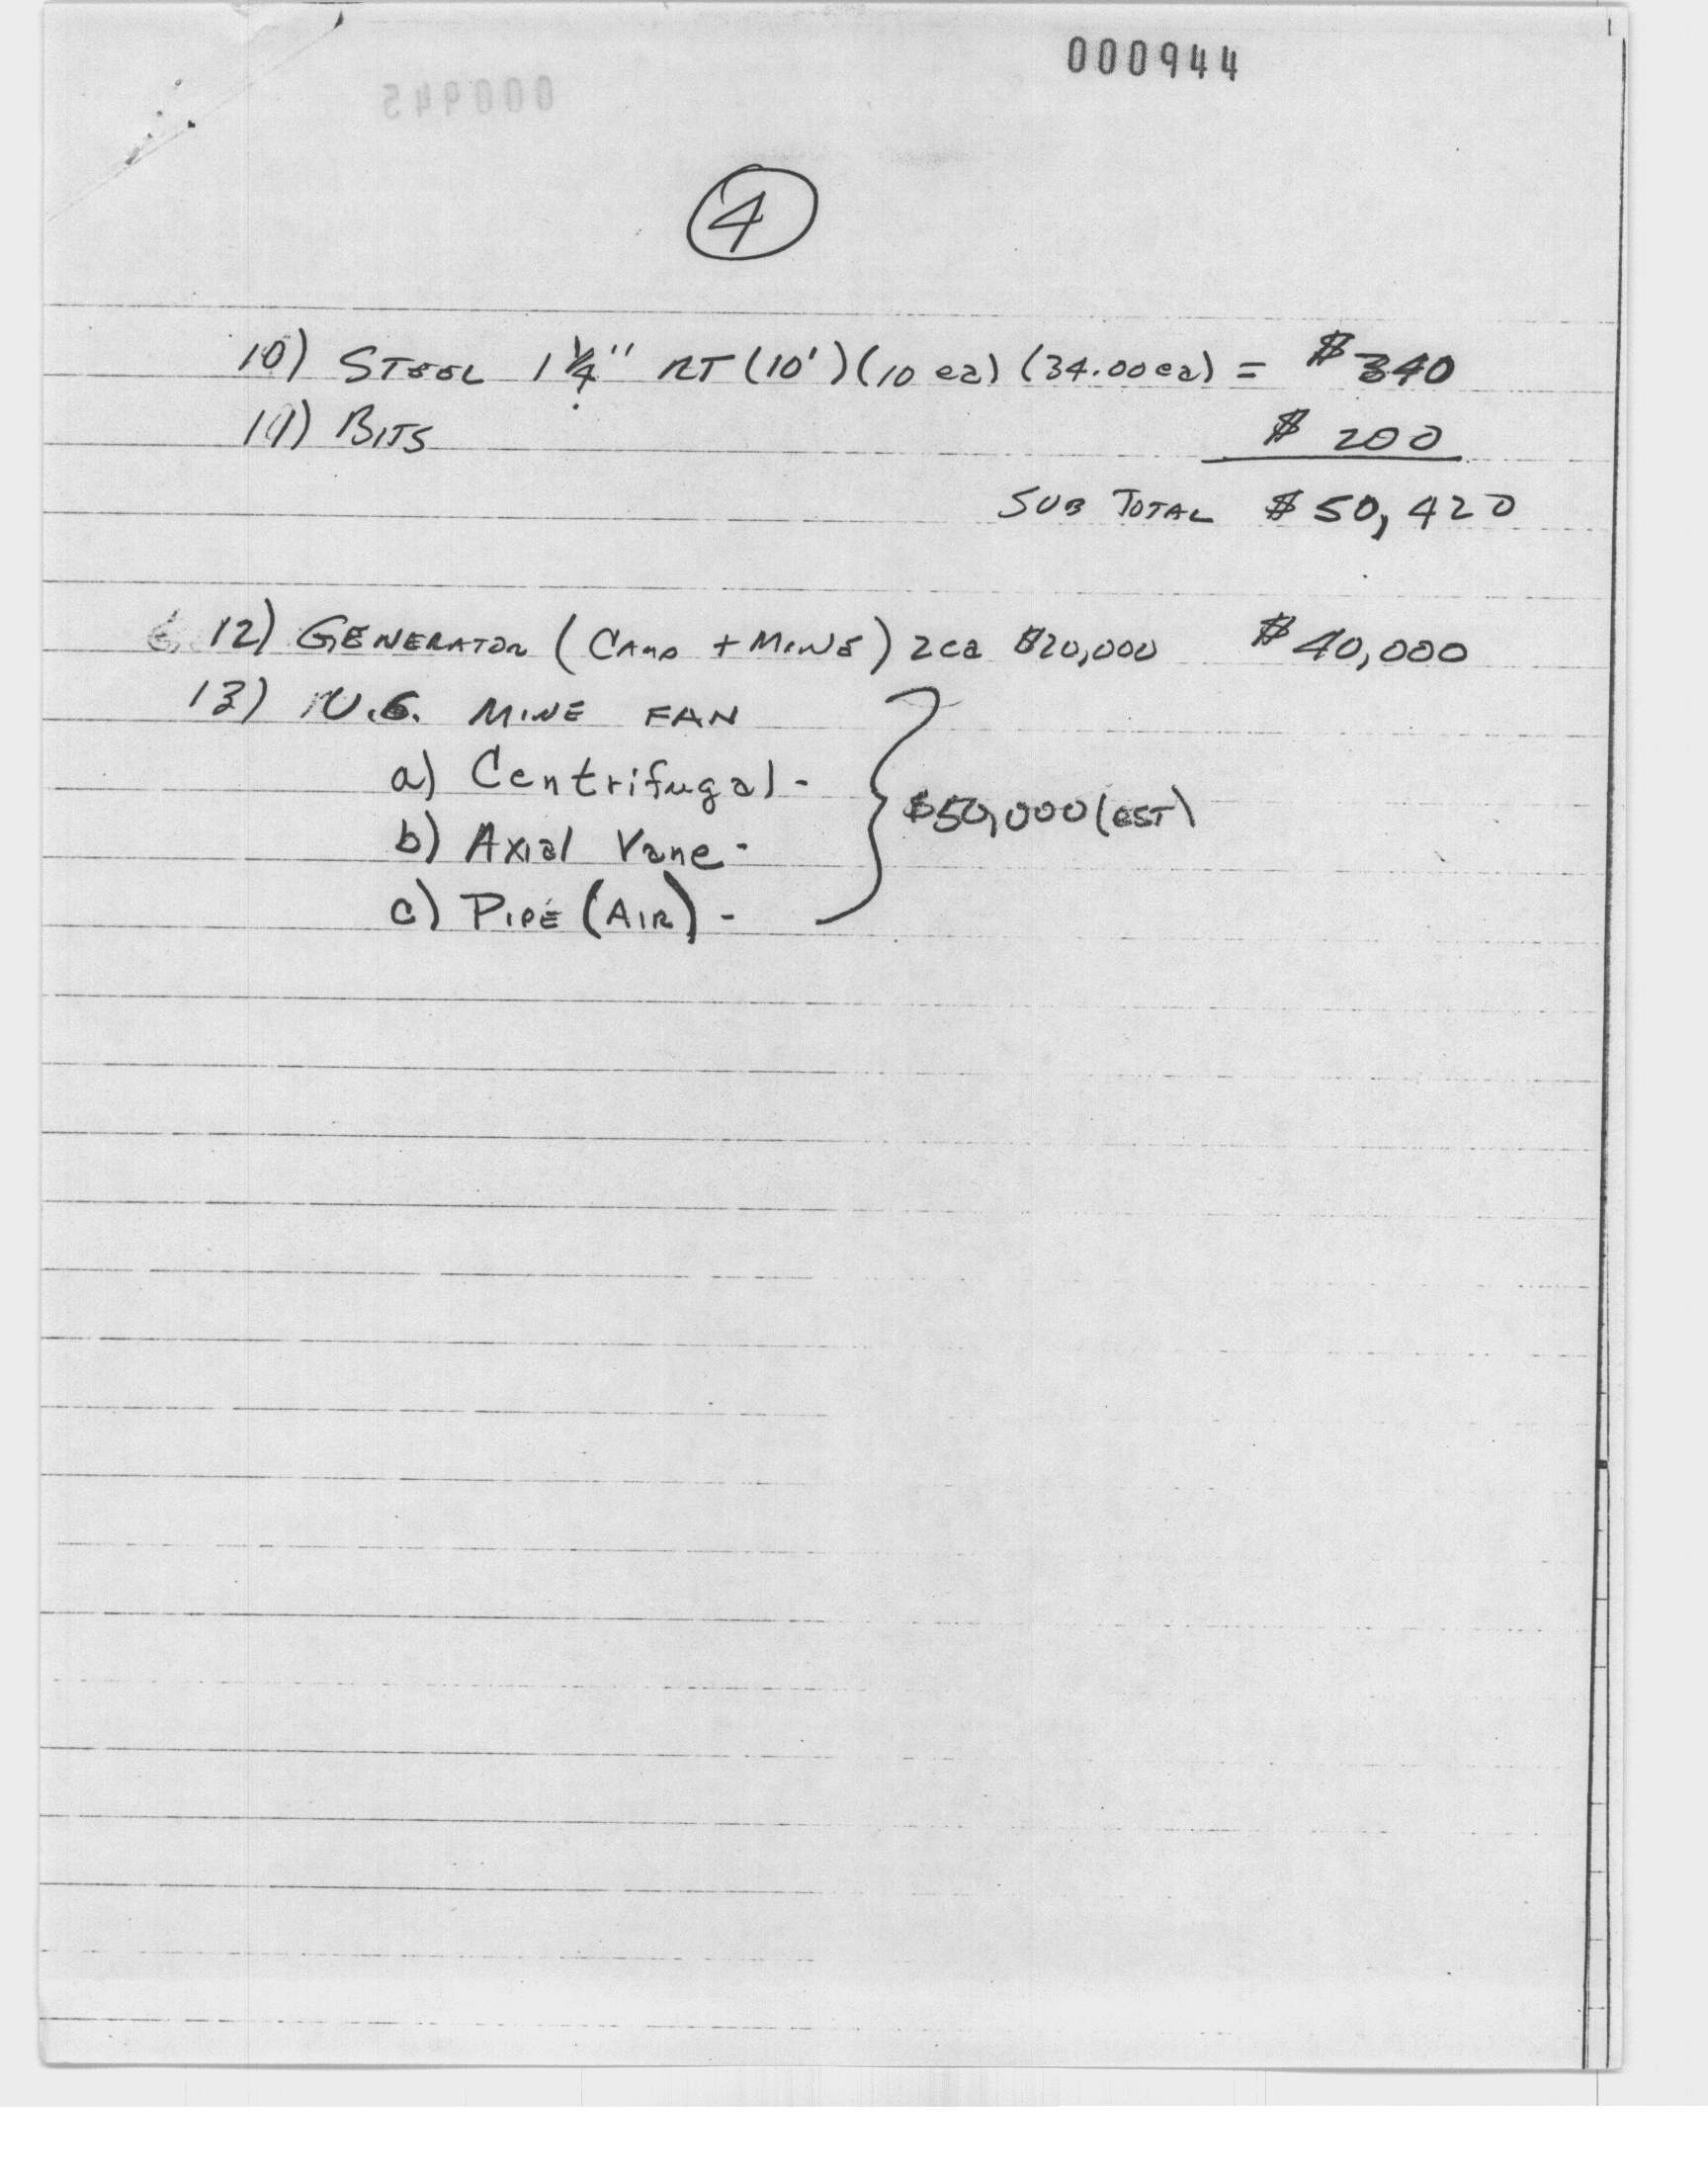 000944
000945
4
10) STEEL 1 1/4" RT (10') (10 ea) (34.00 ea) = $340
11) BITS $ 200
SUB TOTAL $ 50,420
12) GENERATOR (CAMP + MINE) 2 ea $20,000 $40,000
13) U.G. MINE FAN
a) Centrifugal -
b) Axial Vane - $50,000 (EST)
c) PIPE (AIR) -